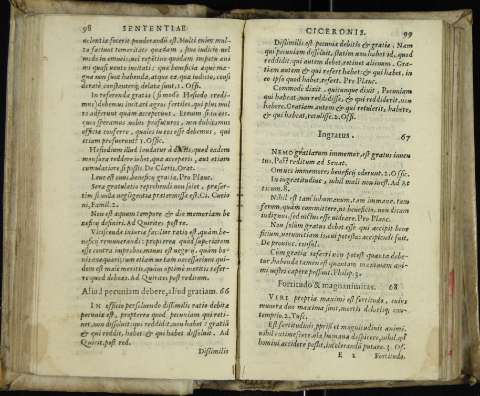 98 SENTENTIAE
uolentia fecerit ponderandū est. Multi enim mul
ta faciunt temeritate quadam, sine iudicio uel
modo in omneis, uel repentino quodam impetu ani
mi quasi uento incitati: quæ beneficia æque ma
gna non sunt habenda, atque ea, quæ iudicio, consi
deratè, constanterq; delata sunt. 1. Offi.
In referenda gratia (si modo Hesiodo credi
mus) debemus imitari agros fertiles, qui plus mul
to adferunt quàm acceperunt. Etenim si in eos,
quos speramus nobis profuturos, non dubitamus
officia conferre, quales in eos esse debemus, qui
etiam profuerunt? 1. Offic.
Hesiodum illud laudatur à doctis, quod eadem
mensura reddere iubet, qua acceperis, aut etiam
cumulatiore si possis. De Claris. Orat.
Leue est onus beneficij gratia. Pro Planc.
Sera gratulatio reprehendi non solet, præser-
tim si nulla negligentia prætermissa est. Ci. Curio
ni, Famil. 2.
Non est aequum tempore & die memoriam be
neficij definiri. Ad Quirites post re.
Vlciscendæ iniuriæ facilior ratio est, quàm be
neficij remunerandi: propterea quod superiorem
esse contra improbos minus est negotij, quàm bo-
nis exaequari: tum etiam ne tam necessarium qui-
dem est malè meritis, quàm optimè meritis refer-
re quod debeas. Ad Quirites post reditum.
Aliud pecuniam debere, aliud gratiam. 66
IN officio persoluendo dissimilis ratio debitæ
pecuniæ est, propterea quod pecuniam qui reti-
net, non dissoluit: qui reddidit, non habet: gratiā
& qui reddit, habet: & qui habet dissoluit. Ad
Quirit. post red.
Dissimilis
CICERONIS. 99
Dissimilis est pecuniæ debitio & gratiæ: Nam
qui pecuniam dissoluit, statim non habet id, quod
reddidit: qui autem debet, retinet alienum. Gra-
tiam autem & qui refert habet: & qui habet, in
eo ipso quod habet, refert. Pro Planc.
Commodè dixit, quicunque dixit, Pecuniam
qui habeat, non reddidisse, & qui reddiderit, non
habere. Gratiam autem & qui retulerit, habere,
& qui habeat, retulisse. 2. Offic.
Ingratus. 67
NEMO gratiarum immemor, est gratus inuen
tus. Post reditum ad Senat.
Omnes immemorem beneficij oderunt. 2. Offic.
In ingratitudine, nihil mali non inest. Ad At
ticum. 8.
Nihil est tam inhumanum, tam immane, tam
ferum, quàm committere ut beneficio, non dicam
indignus, sed uictus esse uideare. Pro Planc.
Non solum gratus debet esse qui accipit bene
ficium, uerumetiam is cui potestas accipiendi fuit.
De prouinc. consul.
Cum gratia referri non potest quanta debe-
tur, habenda tamen est quantam maximam ani-
mi nostri capere possunt. Philip. 3.
Fortitudo & magnanimitas. 68
VIRI propria maximè est fortitudo, cuius
munera duo maxima sunt, mortis dolorisq; con-
temptio. 2. Tusc.
Est fortitudinis, proprij est magnitudinis animi,
nihil extimescere, omnia humana despicere, nihil, qd
homini accidere possit, intolerandū putare. 3. Of.
E 2 Fortitudo.